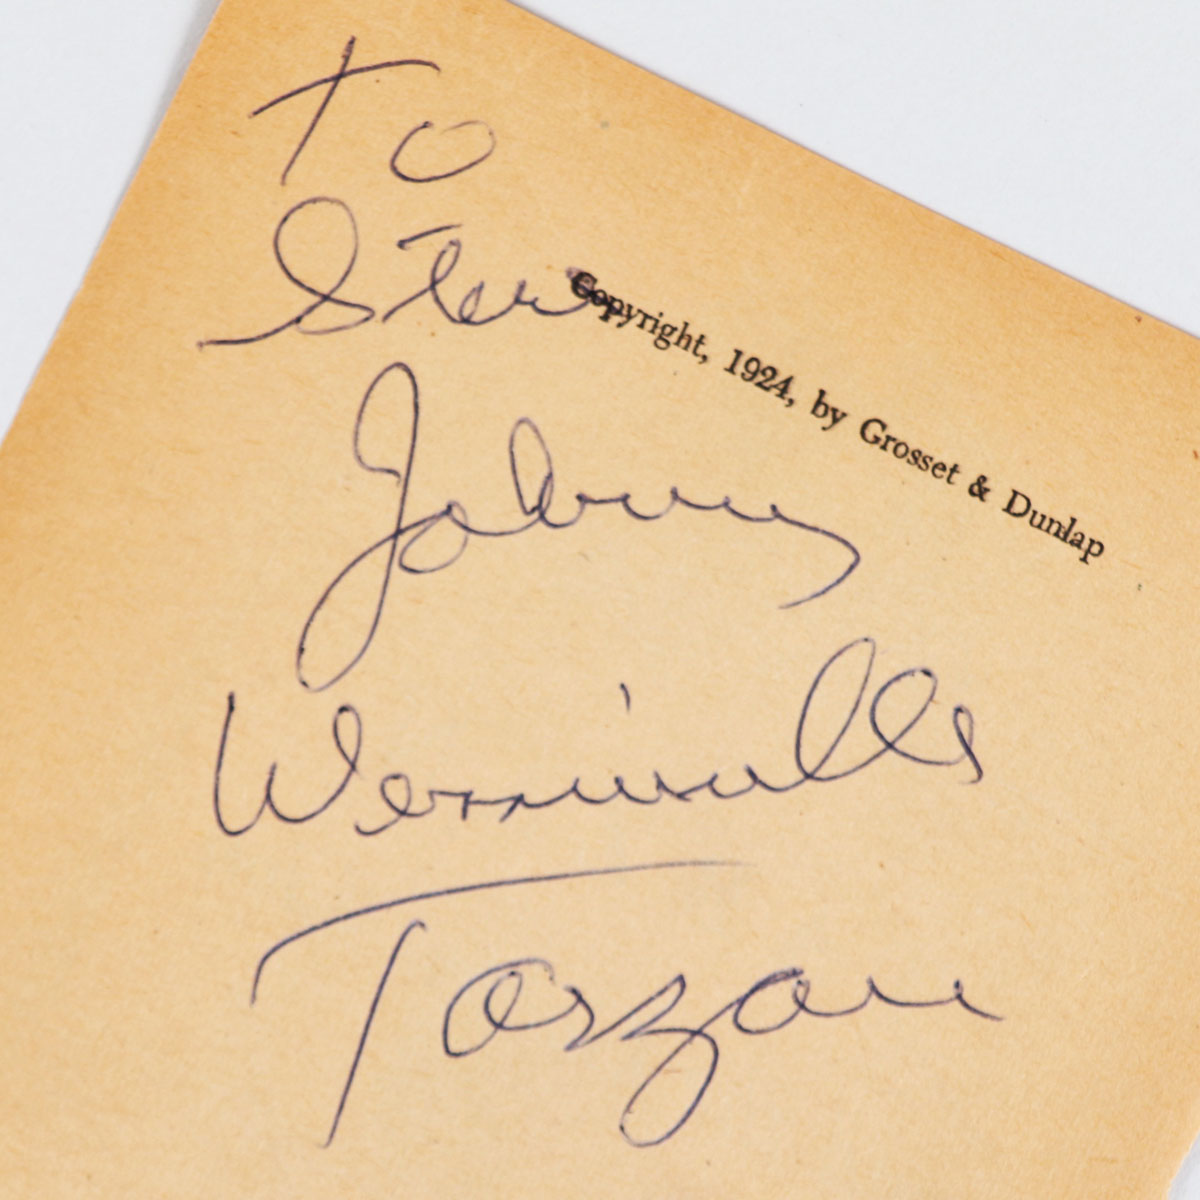 To
Steve
Copyright, 1924, by Grosset & Dunlap
Johnny
Weissmuller
Tarzan